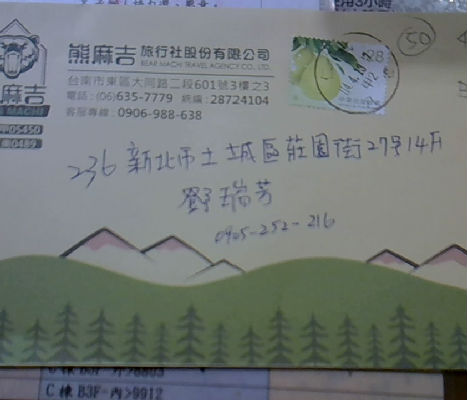 用3小時
50
熊麻吉 旅行社股份有限公司
BEAR MACHI TRAVEL AGENCY CO., LTD.
台南市東區大同路二段601號3樓之3
電話:(06)635-7779 統編:28724104
客服專線:0906-988-638
麻吉
05450
0489
236 新北市土城區莊園街27号14F
鄧瑞芳
0905-252-216
C棟 B3F-內>9912